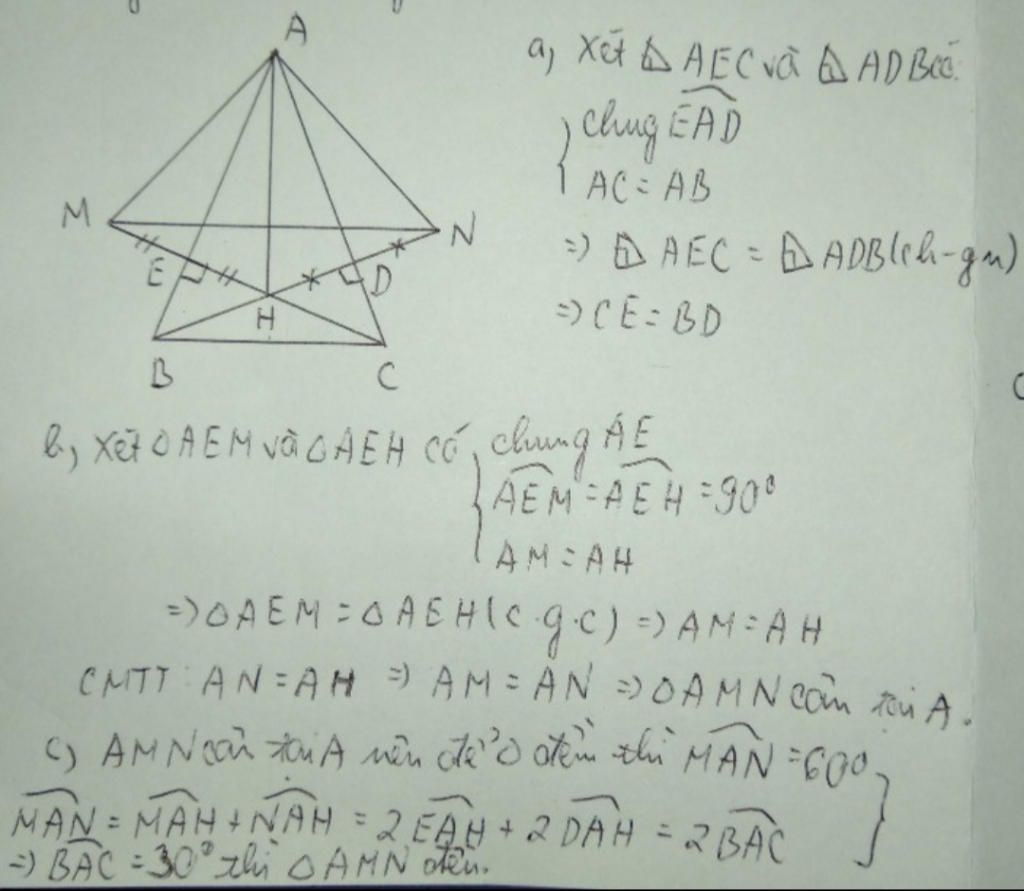 A
M
N
E
D
H
B
C
a, Xét ⊿ AEC và ⊿ ADB có
chug EAD
AC = AB
=> ⊿ AEC = ⊿ ADB (ch - gn)
=> CE = BD
b, Xét △AEM và △AEH có chung AE
AEM = AEH = 90°
AM = AH
=> △AEM = △AEH (c.g.c) => AM = AH
CMTT: AN = AH => AM = AN => △AMN cân tại A.
c) AMN cân tại A nên để △ đều thì MAN = 60°
MAN = MAH + NAH = 2EAH + 2DAH = 2BAC
=> BAC = 30° thì △AMN đều.